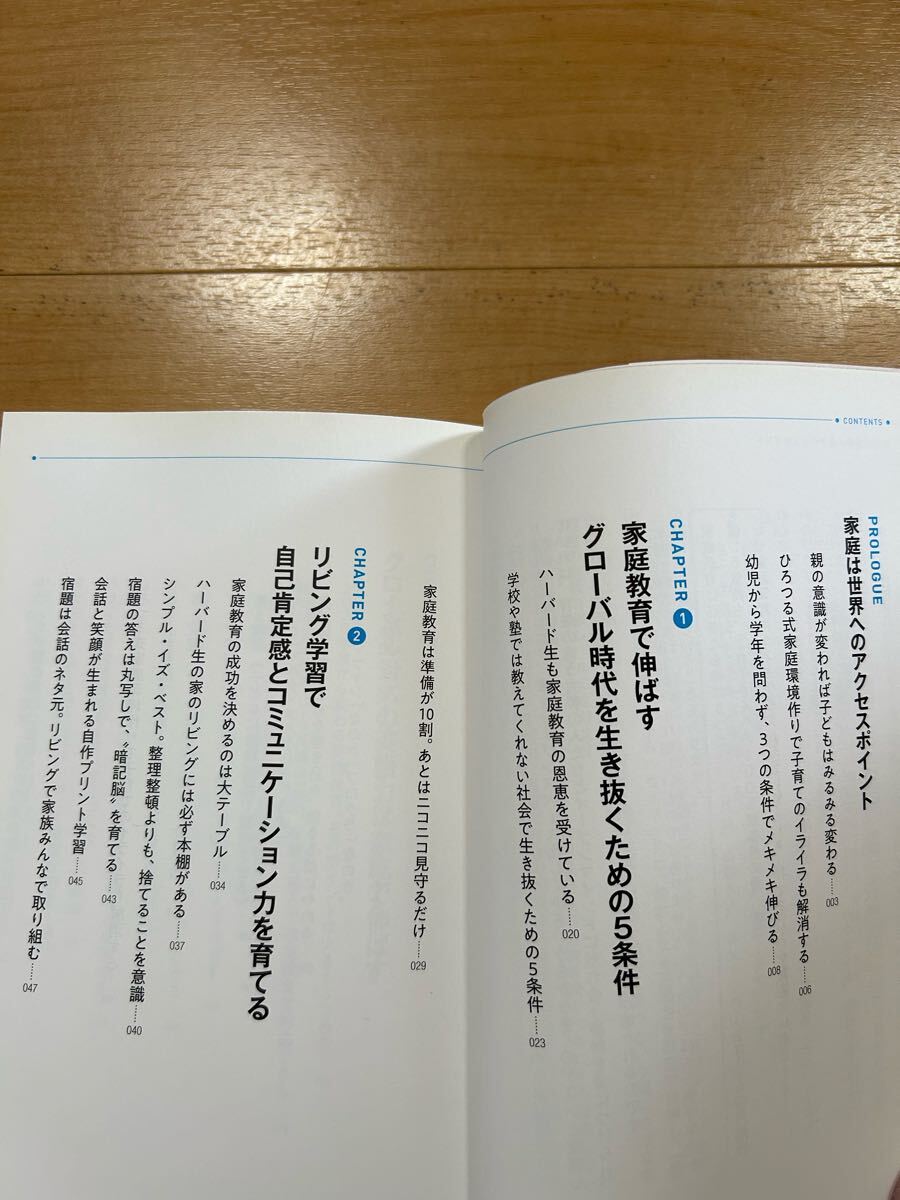 CONTENTS
PROLOGUE
家庭は世界へのアクセスポイント
親の意識が変われば子どもはみるみる変わる……003
ひろつる式家庭環境作りで子育てのイライラも解消する……006
幼児から学年を問わず、3つの条件でメキメキ伸びる……008
CHAPTER 1
家庭教育で伸ばす
グローバル時代を生き抜くための5条件
ハーバード生も家庭教育の恩恵を受けている……020
学校や塾では教えてくれない社会で生き抜くための5条件……023
家庭教育は準備が10割。あとはニコニコ見守るだけ……029
CHAPTER 2
リビング学習で
自己肯定感とコミュニケーション力を育てる
家庭教育の成功を決めるのは大テーブル……034
ハーバード生の家のリビングには必ず本棚がある……037
シンプル・イズ・ベスト。整理整頓よりも、捨てることを意識……040
宿題の答えは丸写しで、〝暗記脳〟を育てる……043
会話と笑顔が生まれる自作プリント学習……045
宿題は会話のネタ元。リビングで家族みんなで取り組む……047